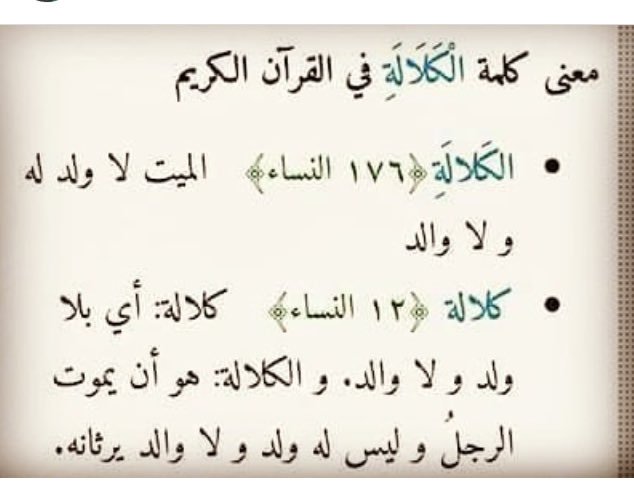 معنى كلمة الْكَلَالَةِ في القرآن الكريم
• الكَلالَةِ ﴿١٧٦ النساء﴾ الميت لا ولد له
و لا والد
• كلالة ﴿١٢ النساء﴾ كلالة: أي بلا
ولد و لا والد. و الكلالة: هو أن يموت
الرجلُ و ليس له ولد و لا والد يرثانه.